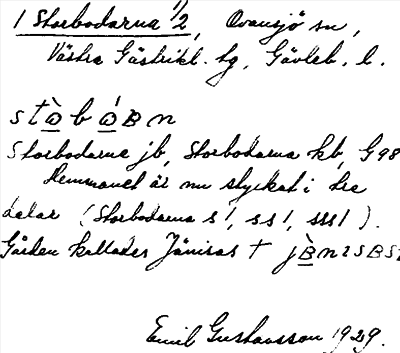 1 Storbodarna 1/2, Ovansjö sn,
Västra Gästrikl. tg, Gävleb. l.
Storbodarne jb, Storbodarna kb, G98
Hemmanet är nu styckat i tre
delar (Storbodarna s1, ss1, sss1).
Gården kallades Jänisas †
Emil Gustavsson 1929.